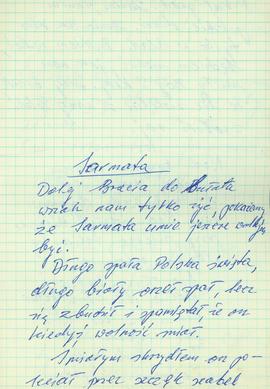 Sarmata
Dalej Bracia do Bułata
wszak nam tylko żyć, pokażemy
że Sarmata umie jeszcze wolnym
być.
Długo spała Polska święta,
długo biały orzeł spał, lecz
się zbudził i spamiętał, że on
kiedyś wolność miał.
Śmiałym skrzydłem on po-
leciał przez szczęk szabel